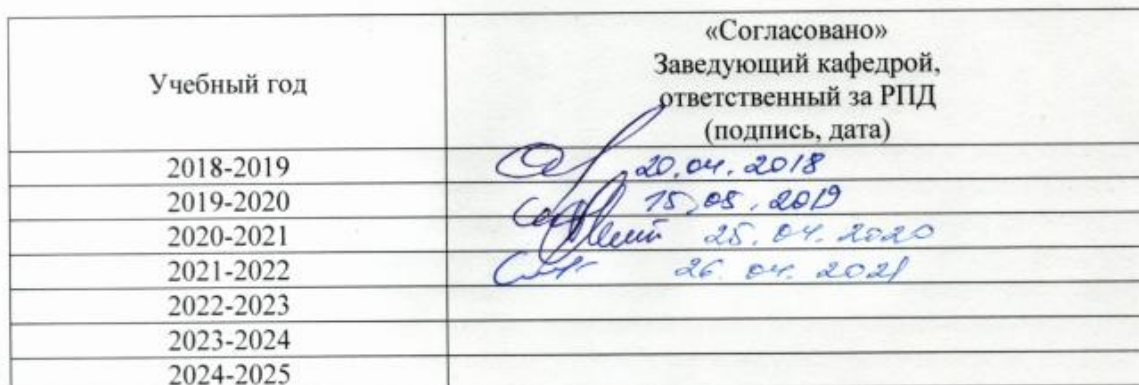 Учебный год
«Согласовано»
Заведующий кафедрой,
ответственный за РПД
(подпись, дата)
2018-2019 20.04.2018
2019-2020 15.05.2019
2020-2021 25.04.2020
2021-2022 26.04.2021
2022-2023
2023-2024
2024-2025